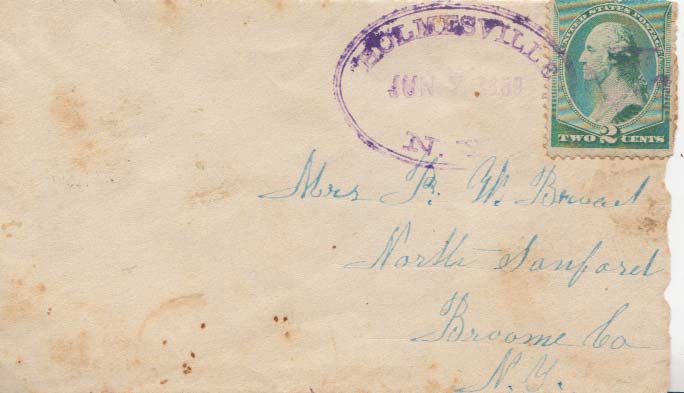 HOLMESVILLE
JUN
N.Y.
UNITED STATES POSTAGE
TWO 2 CENTS
Mrs W.
North Sanford
Broome Co
N.Y.